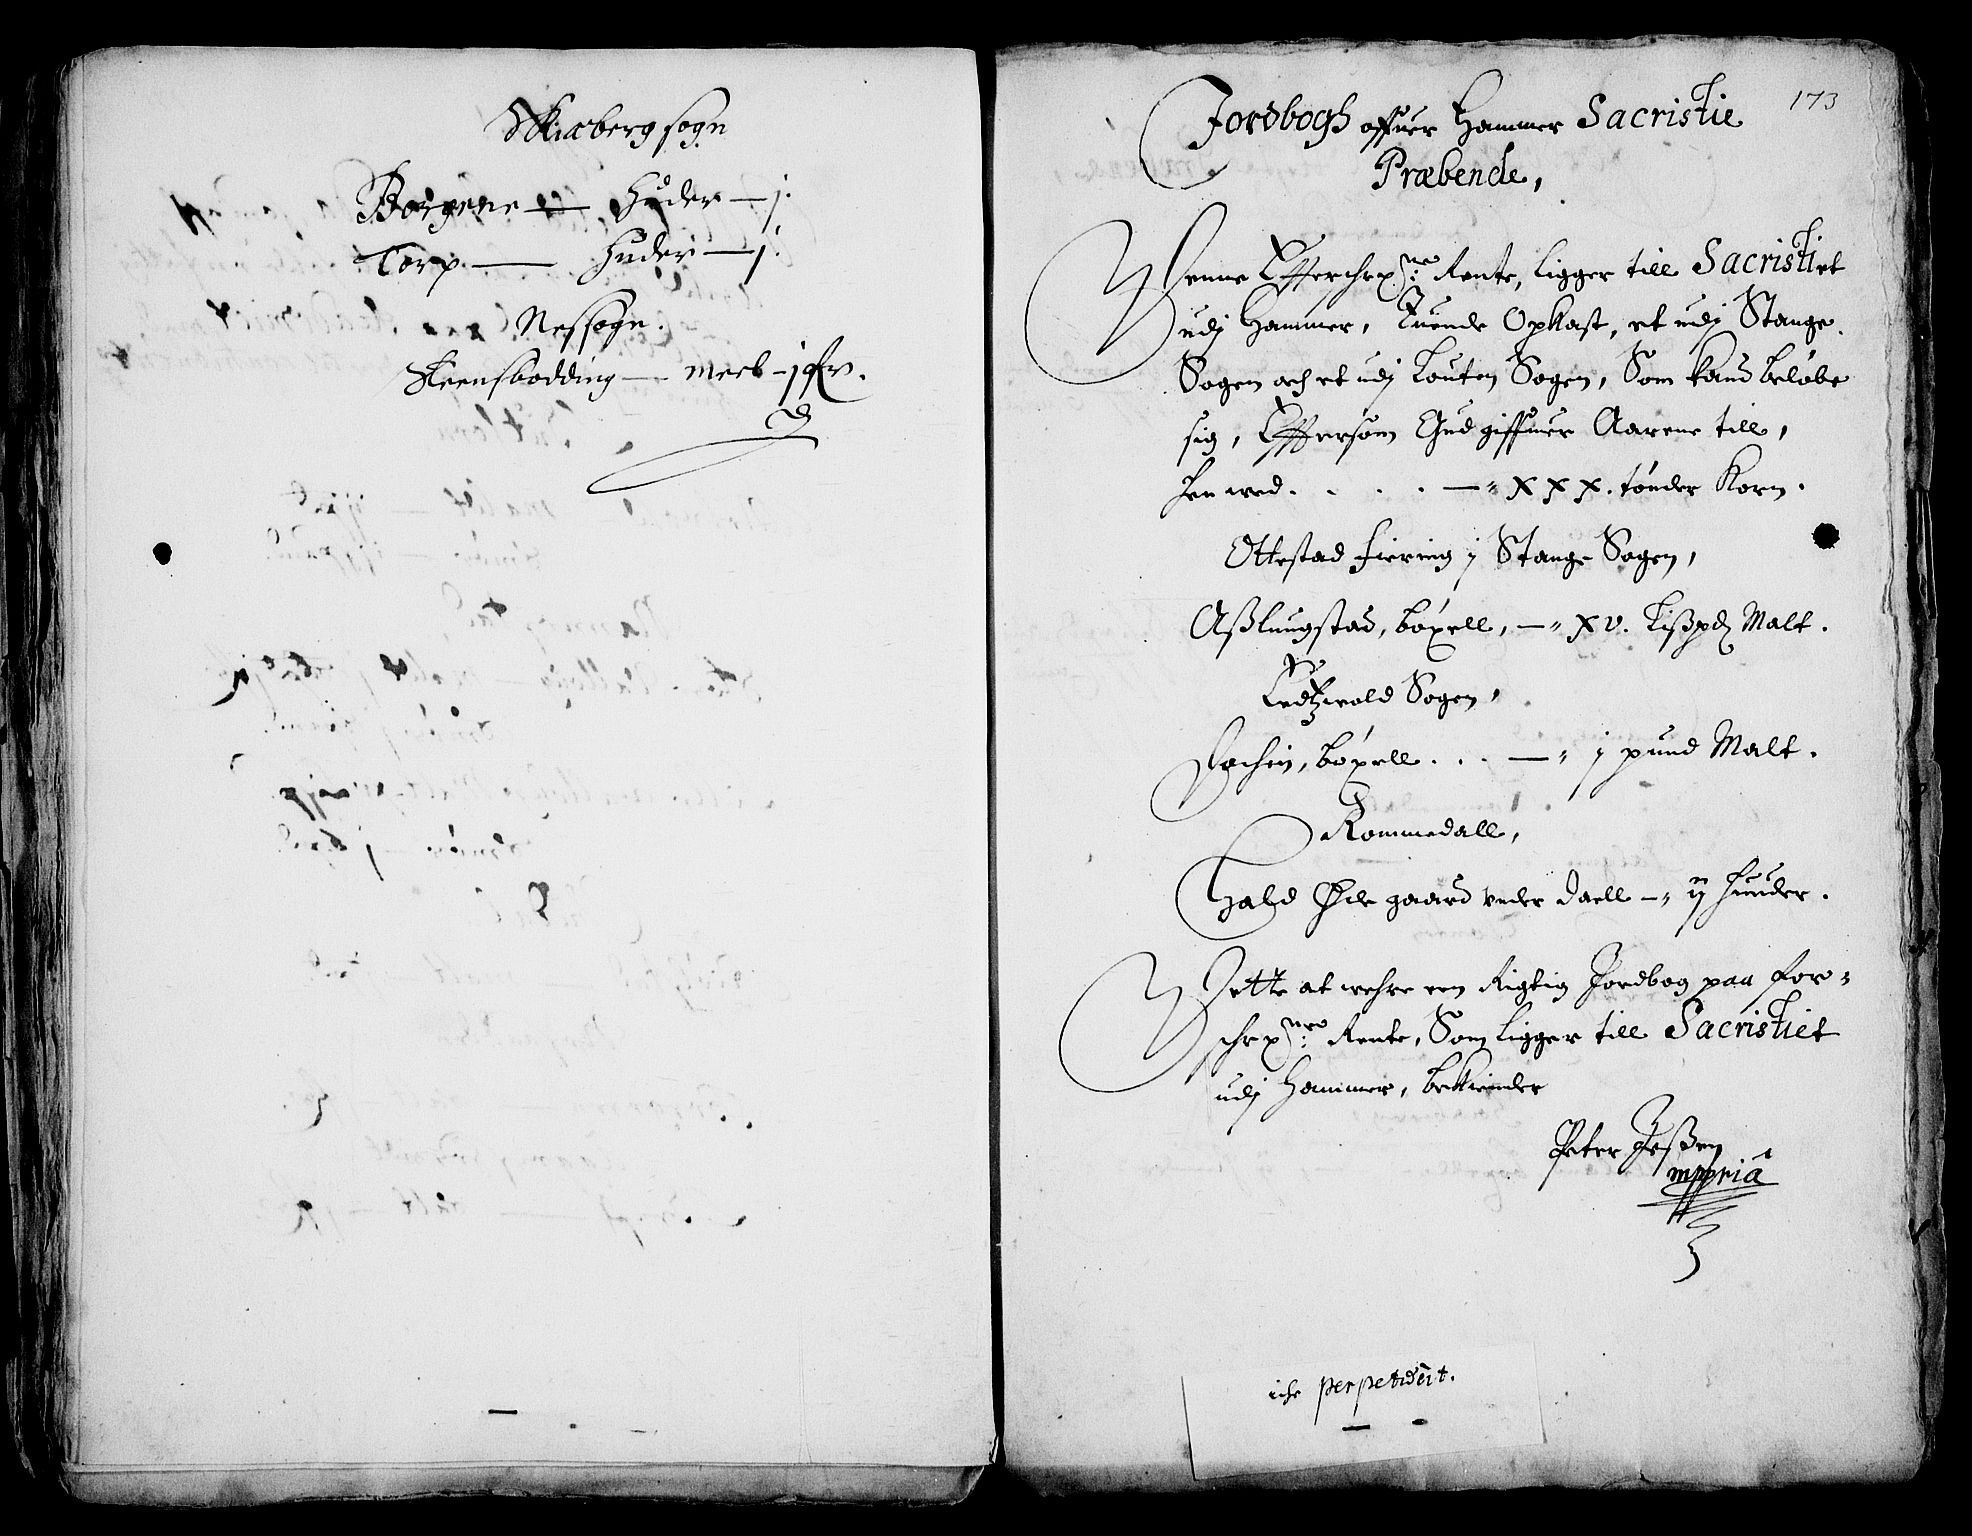 Skiæberg sogn
Borgene — Huder — j.
Torp — huder — j.
Nessogn.
Steensbodding — meel — j
173
Jordbogh offuer Hammer Sacristie
Præbende,
Denne Effterschrpne: Rente, ligger till Sacristiet
udj Hammer, Tuende Opkast, et udj Stange
Sogen och et udj Louten Sogen, Som kand beløbe
sig, Efftersom Gud giffuer Aarene till,
hen wed. . . . — xxx. tønder Korn.
Ottestad fiering j Stange Sogen,
Asslungstad, bøxell, — xv. Lisspd Malt.
Sogen,
bøxell . . . — j pund Malt.
Rommedall,
Øde gaard under Daell — ij huuder.
Dette at wehre een Rigtig Jordbog paa for=
schrpne: Rente, Som ligger till Sacristiet
udj Hammer, bekiender
Peter Jessen
mppriâ
iche perpetuert.